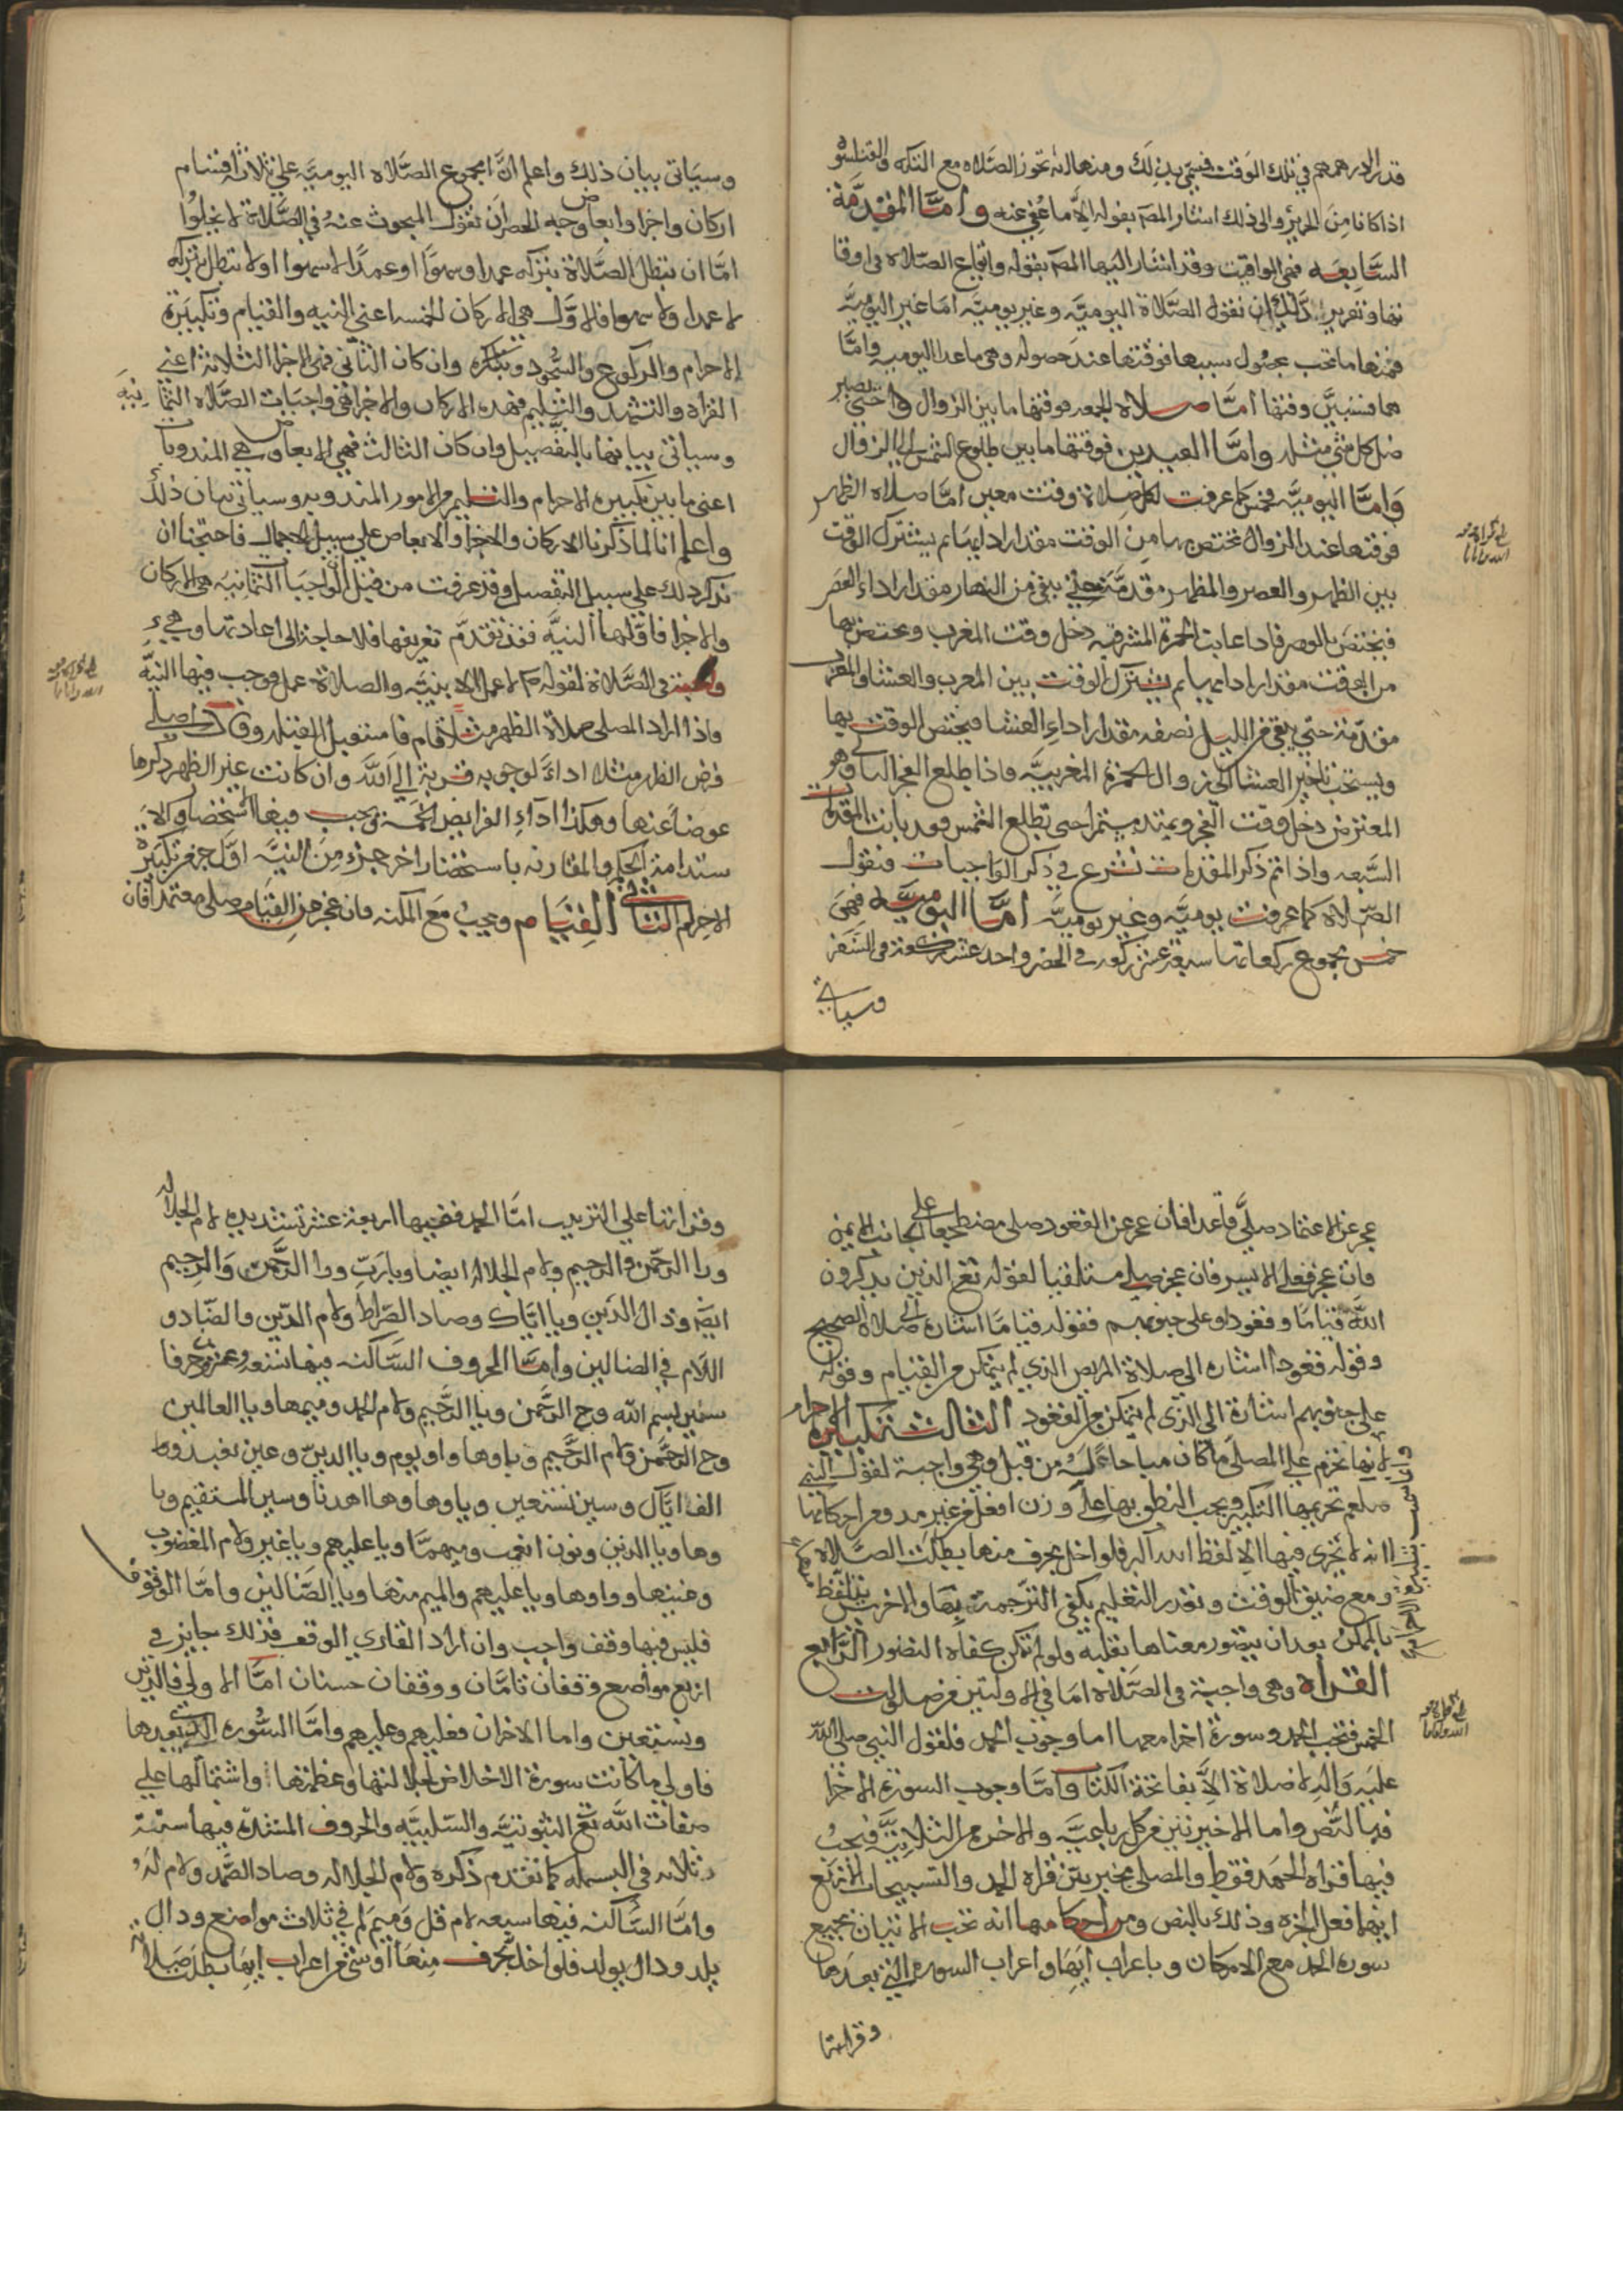 قدر الدرهم في تلك الوقت فسمي بذلك ومنها انه تجوز الصلاه مع التكه والقلنسوه
اذا كانا من الحرير والى ذلك اشار المص بقوله الا ما عفي عنه وامّا المقدّمة
السّابعه فهي المواقيت وقد اشار اليها المص بقوله وايقاع الصّلاه في اوقا
تها وتقرير ذلك ان نقول الصّلاة اليوميّه وغير يوميّه امّا غير اليوميّه
فمنها ما تجب بحصول سببها فوقتها عند حصوله وهي ما عدا اليوميه وامّا
هما فسنبيّن وقتها امّا صلاه الجمعه فوقتها ما بين الزوال واحتى يصير
ظل كل شي مثله وامّا العيدين فوقتها ما بين طلوع الشمس الى الزوال
وامّا اليوميّه فخمس كما عرفت لكل صلاة وقت معين امّا صلاه الظهر
فوقتها عند الزوال تختص بها من الوقت مقدار ادايها ثم يشترك الوقت
بين الظهر والعصر والظهر مقدمة حتى يبقى من النهار مقدار اداء العصر
فيختص بالعصر فاذا غابت الحمرة المشرقيه دخل وقت المغرب وتختص بها
من الوقت مقدار ادايها ثم يشترك الوقت بين المغرب والعشا والمغرب
مقدّمة حتى يبقى من الليل نصفه مقدار اداء العشا فيختص الوقت بها
ويستحب تاخير العشا الى زوال الحمرة المغربيّه فاذا طلع الفجر الثاني وهو
المعترض دخل وقت الفجر ويمتد مستمرا حتى تطلع الشمس فهو بانت المقدمات
السّبعه واذا تم ذكر المقدمات نشرع في ذكر الواجبات فنقول
الصّلاه كما عرفت يوميّه وغير يوميّه امّا اليوميّه فهي
خمس مجموع ركعاتها سبعة عشر ركعه في الحضر واحد عشر ركعة في السّفر
وسياتي
وسيَاتي بيان ذلك واعلم انّ مجموع الصّلاه اليوميّه على ثلاثة اقسام
اركان واجزا وابعاض وجه الحصر ان نقول المبحوث عنهُ في الصّلاة لا يخلوا
امّا ان تبطل الصّلاة بتركه عمدا وسهوًا او عمدًا لا سهوا او لا تبطل بتركه
لا عمدا ولا سهوا فالاوّل هي الاركان الخمسه اعني النيه والقيام وتكبيرة
الاحرام والركوع والسّجود وان كان الثاني فهي الاجزا الثلاثة اعني
القراة والتشهد والتّسليم فهذه الاركان والاجزا هي واجبات الصّلاه الثمانيه
وسياتي بيانها بالتفصيل وان كان الثالث فهي الابعاض وهي المندوبات
اعني ما بين تكبيره الاحرام والتسليم من الامور المندوبه وسياتي بيان ذلك
واعلم انا لما ذكرنا الاركان والاجزا والابعاض على سبيل الاجمال فاحتجنا ان
نذكر ذلك على سبيل التفصيل وقد عرفت من قبل انّ الواجبات الثمانيه هي الاركان
والاجزا فاوّلها النيّه فقد تقدّم تعريفها فلا حاجة الى اعادتها وهي
واجبة في الصّلاة لقوله ع م لا عمل الا بنيّه والصلاة عمل فوجب فيها النيّه
فاذا اراد المصلي صلاة الظهر مثلا قام فاستقبل القبله وقال اصلي
فرض الظهر مثلا اداءً لوجوبه قربة الى الله وان كانت غير الظهر ذكرها
عوضا عنها وهكذا اداء الفرايض الخمسة ويجب فيها استحضا
ستدامة الحكم والمقارنه باستحضار اخر جزء من النيّه اوّل جزء من تكبيرة
الاحرام الثاني القيام ويجب مع المكنه فان عجز عن القيام صلى معتمدا فان
عجز عن الاعتماد صلّى قاعدا فان عجز عن القعود صلى مضطجعا على الجانب الايمن
فان عجز فعلى الايسر فان عجز صلى مستلقيا لقوله تع الذين يذكرون
الله قياما وقعودا وعلى جنوبهم فقوله قيامًا اشاره الى صلاة الصحيح
وقوله قعودا اشاره الى صلاة المريض الذي لم يتمكن من القيام وقوله
على جنوبهم اشارة الى الذي لم يتمكن من القعود الثالث تكبيرة الاحرام
لانها تحرم على المصلي ما كان مباحا له من قبل وهي واجبة لقول النبي
صلعم تحريمها التكبير ويجب النطق بها على وزن افعل من غير مد ومن احكامها
انه لا تجزي فيها الا لفظ الله اكبر فلو اخل بحرف منها بطلت الصّلاه
ومع ضيق الوقت وتعذر التعليم يكفي الترجمة بها والاخرس يتلفظ
بالممكن بعد ان يتصور معناها بقلبه ولو لم يمكن كفاه التصور الرّابع
القراه وهي واجبة في الصّلاه امّا في الاولتين من صلوات
الخمس فتجب الحمد وسورة اخرا معها اما وجوب الحمد فلقول النبي صلى الله
عليه واله لا صلاة الاّ بفاتحة الكتاب وامّا وجوب السورة الاخرا
فبالنص واما الاخيرتين من كل رباعيّه والاخره من الثلاثيّه فيجب
فيها قراة الحمد فقط والمصلي مخير بين قراه الحمد والتسبيحات الاربع
ايهما فعل اجزه وذلك بالنص ومن احكامها انه تجب الاتيان بجميع
سورة الحمد مع الامكان وباعراب ايهَا واعراب السوره التي بعدها
وقراتها
وقراتها على الترتيب امّا الحمد ففيها اربعة عشر تشديده لام الجلاله
ورا الرّحمن والرحيم ولام الجلاله ايضا وبا ربّ ورا الرّحمن والرحيم
ايضه ودال الدّين ويا ايّاك وصاد الصّراط ولام الذين والضّاد و
اللّام في الضالين وامّا الحروف السّاكنه فيها تسعه وعشرين حرفا
سين بسم الله وح الرّحمن ويا الرّحيم ولام الحمد وميمها ويا العالمين
وح الرّحمن ويا الرّحيم وياوها واو يوم ويا الدين وعين نعبد وواو
الف اياك وسين نستعين وياوها وها اهدنا وسين المستقيم ويا
وها ويا الذين ونون انعمت وميمها ويا عليهم ويا غير ولام المغضوب
وغينها وواوها ويا عليهم والميم منها ويا الضّالين وامّا الوقوف
فليس فيها وقف واجب وان اراد القاري الوقف فذلك جايز في
اربع مواضع وقفان تامّان ووقفان حسنان امّا الاولى فالدين
ونستعين واما الاخران فعليهم وعليهم وامّا السّوره التي بعدها
فاولى ما كانت سورة الاخلاص لجلالتها وعظمتها واشتمالها على
صفات الله تع الثبوتيّه والسّلبيّه والحروف المشدّده فيها ستّة
ثلاثه في البسمله كما تقدم ذكره ولام الجلاله وصاد الصّمد ولام له
وامّا السّاكنه فيها سبعه لام قل وميم لم في ثلاث مواضع ودال
يلد ودال يولد فلو اخل بحرف منها او شي من اعراب ايها بطلت صلاته